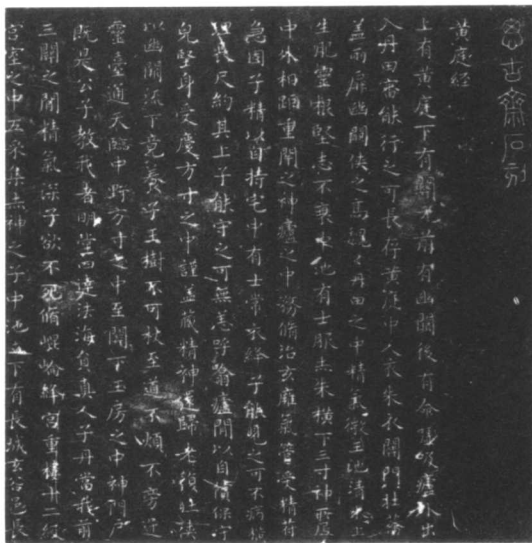 思古齋石刻
黃庭經
上有黃庭下有關元前有幽闕後有命噓吸廬外出
入丹田審能行之可長存黃庭中人衣朱衣關門壯籥
蓋兩扉幽闕俠之高魏〻丹田之中精氣微玉池清水上
生肥靈根堅志不衰中池有士服赤朱橫下三寸神所居
中外相距重閉之神廬之中務脩治玄膺氣管受精符
急固子精以自持宅中有士常衣絳子能見之可不病橫
理長尺約其上子能守之可無恙呼翕廬閒以自償保守
皃堅身受慶方寸之中謹蓋藏精神還歸老復壯俠
以幽闕流下竟養子玉樹不可杖至道不煩不旁迕
靈臺通天臨中野方寸之中至關下玉房之中神門戶
既是公子教我者明堂四達法海員真人子丹當我前
三關之閒精氣深子欲不死脩崐崘絳宮重樓十二級
宮室之中五采集赤神之子中池立下有長城玄谷邑長